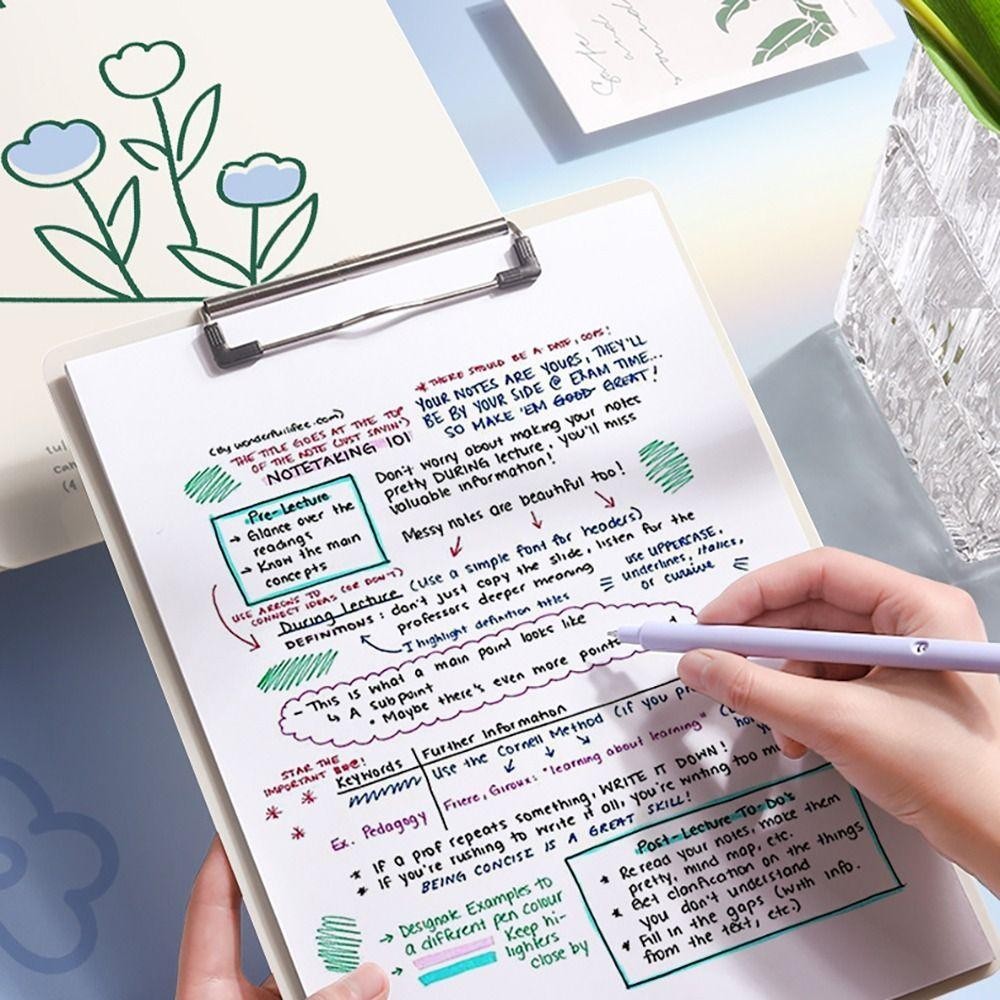 Safe
and
sound
* THERE SHOULD BE A DATE, OOPS!
YOUR NOTES ARE YOURS, THEY'LL
BE BY YOUR SIDE @ EXAM TIME...
SO MAKE 'EM GOOD GREAT!
(by wonderfullifee.com)
THE TITLE GOES AT THE TOP
OF THE NOTE (JUST SAYIN')
NOTETAKING 101
Don't worry about making your notes
pretty DURING lecture, you'll miss
valuable information!
Messy notes are beautiful too!
Pre-Lecture
→ Glance over the
readings
→ Know the main
concepts
USE ARROWS TO
CONNECT IDEAS (OR DON'T)
During Lecture (Use a simple font for headers)
DEFINITIONS: don't just copy the slide, listen for the
professors deeper meaning
I highlight definition titles
use UPPERCASE,
underlines, italics,
or cursive
- This is what a main point looks like
↳ A subpoint
• Maybe there's even more points
STAR THE
IMPORTANT
Keywords
Further Information
Use the Cornell Method (if you
Ex. Pedagogy
Friere, Giroux: "learning about learning"
* If a prof repeats something, WRITE IT DOWN!
* If you're rushing to write it all, you're writing too
BEING CONCISE IS A GREAT SKILL!
→ Designate Examples to
a different pen colour
→ Keep hi-
lighters
close by
Post-Lecture To-Do's
* Reread your notes, make them
pretty, mind map, etc.
* Get clarification on the things
you don't understand
* Fill in the gaps (with info.
from the text, etc.)